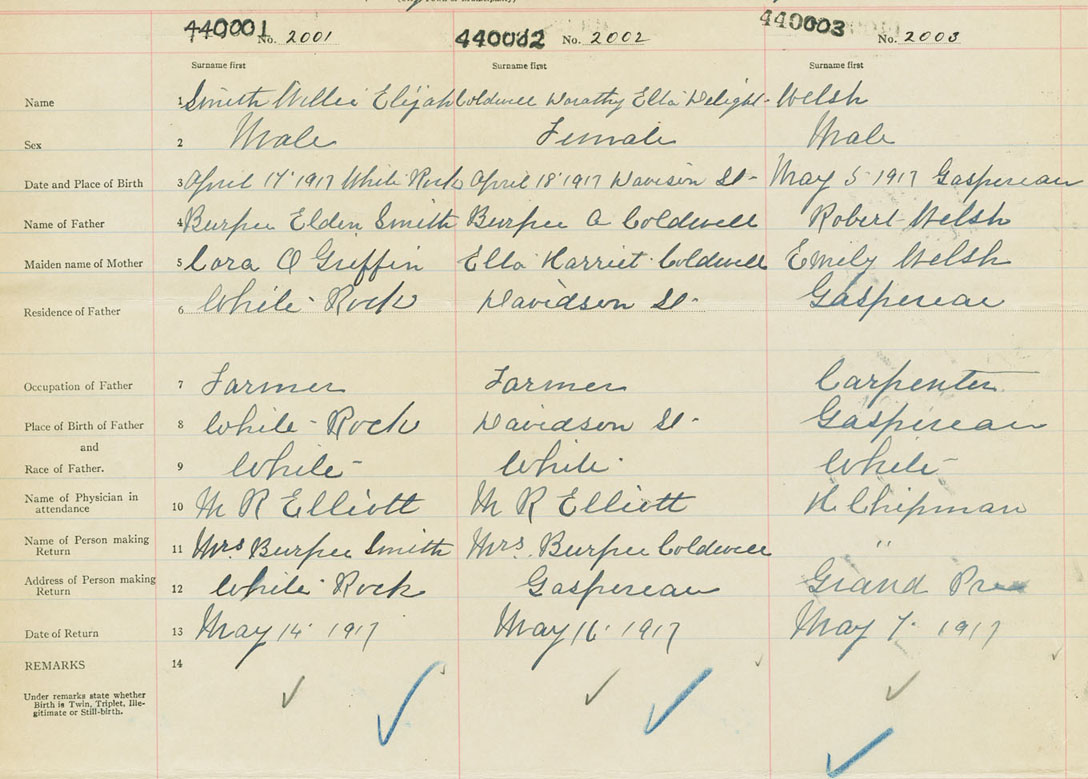 440001 No. 2001 440002 No. 2002 440003 No. 2003
Surname first Surname first Surname first
Name 1 Smith Willie Elijah Coldwell Dorathy Ella Delight- Welsh
Sex 2 Male Female Male
Date and Place of Birth 3 April 17 1917 White Rock April 18 1917 Davison St- May 5 1917 Gaspereau
Name of Father 4 Burpee Elden Smith Burpee A Coldwell Robert Welsh
Maiden name of Mother 5 Cora O Griffin Ella Harriet Coldwell Emily Welsh
Residence of Father 6 White Rock Davidson St- Gaspereau
Occupation of Father 7 Farmer Farmer Carpenter
Place of Birth of Father 8 White-Rock Davidson St- Gaspereau
and
Race of Father. 9 White- White White-
Name of Physician in
attendance 10 M R Elliott M R Elliott H Chipman
Name of Person making
Return 11 Mrs Burpee Smith Mrs. Burpee Coldwell "
Address of Person making
Return 12 White Rock Gaspereau Grand Pre
Date of Return 13 May 14 1917 May 16 1917 May 7. 1917
REMARKS 14
Under remarks state whether
Birth is Twin, Triplet, Ille-
gitimate or Still-birth.